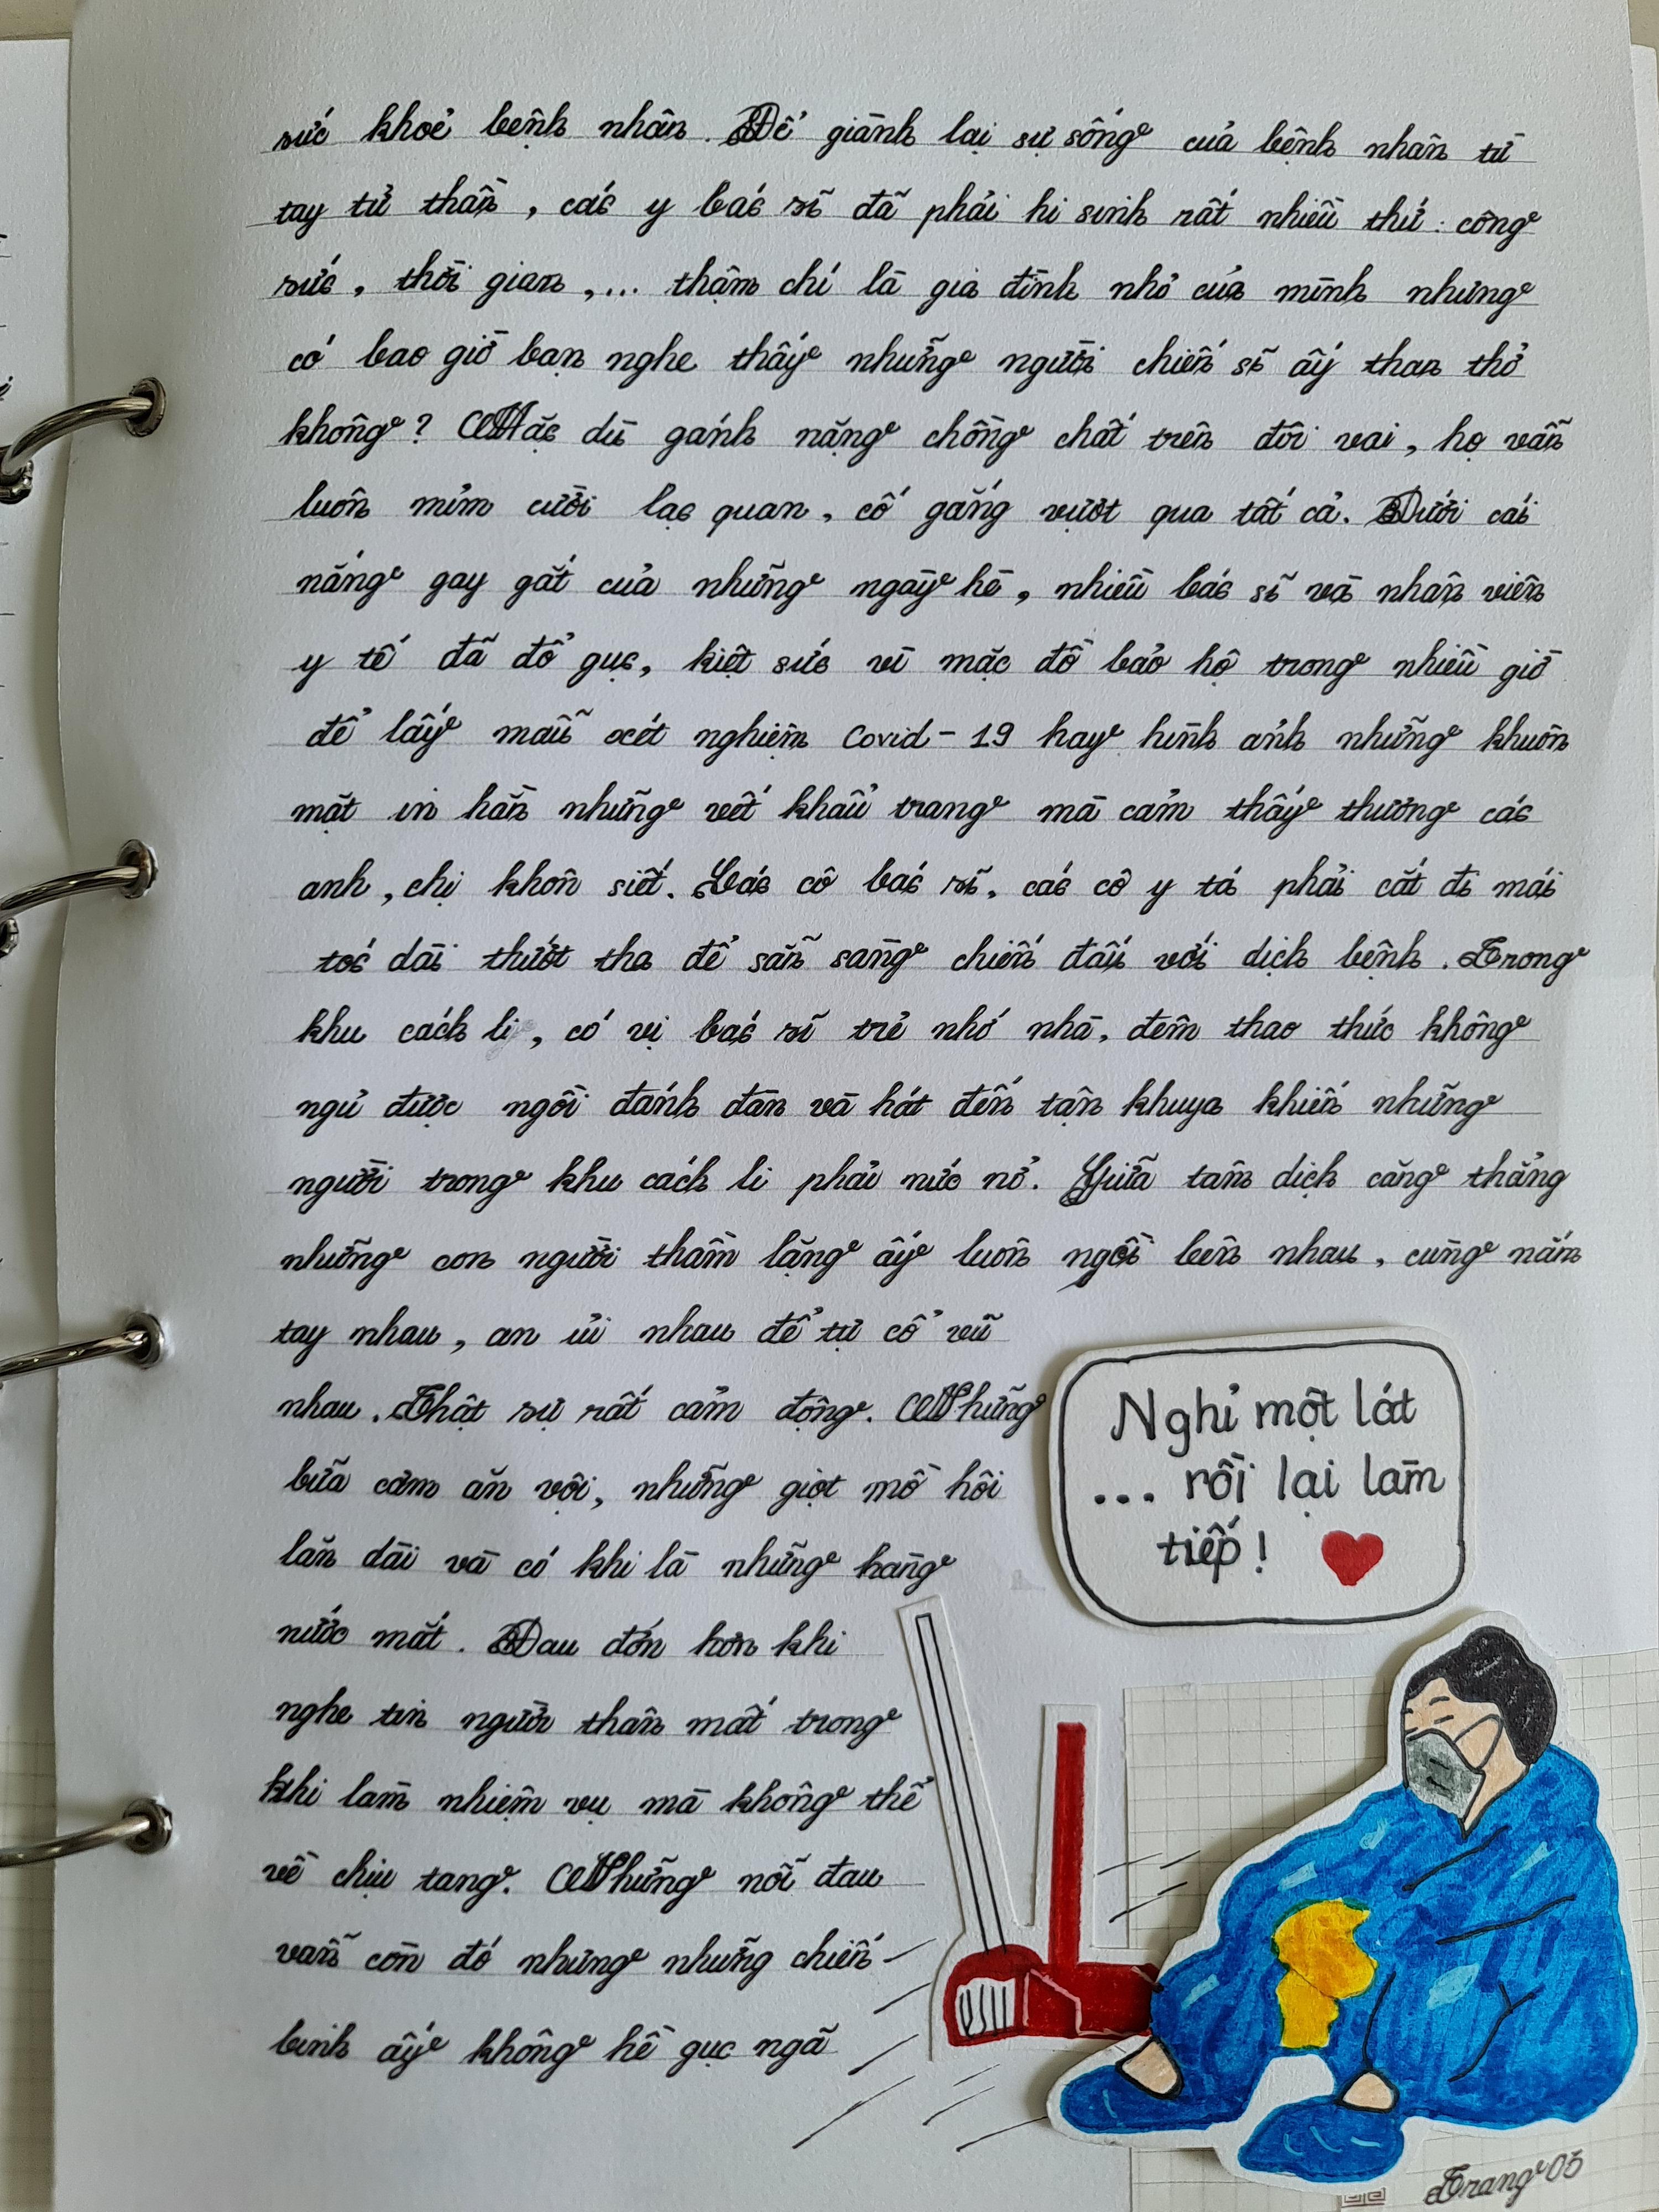 sức khoẻ bệnh nhân. Để giành lại sự sống của bệnh nhân từ
tay tử thần, các y bác sĩ đã phải hi sinh rất nhiều thứ: công
sức, thời gian,... thậm chí là gia đình nhỏ của mình nhưng
có bao giờ bạn nghe thấy những người chiến sĩ ấy than thở
không? Mặc dù gánh nặng chồng chất trên đôi vai, họ vẫn
luôn mỉm cười lạc quan, cố gắng vượt qua tất cả. Dưới cái
nắng gay gắt của những ngày hè, nhiều bác sĩ và nhân viên
y tế đã đổ gục, kiệt sức vì mặc đồ bảo hộ trong nhiều giờ
để lấy mẫu xét nghiệm Covid-19 hay hình ảnh những khuôn
mặt in hằn những vết khẩu trang mà cảm thấy thương các
anh, chị khôn siết. Các cô bác sĩ, các cô y tá phải cắt đi mái
tóc dài thướt tha để sẵn sàng chiến đấu với dịch bệnh. Trong
khu cách li, có vị bác sĩ trẻ nhớ nhà, đêm thao thức không
ngủ được ngồi đánh đàn và hát đến tận khuya khiến những
người trong khu cách li phải nức nở. Giữa tâm dịch căng thẳng
những con người thầm lặng ấy luôn ngồi bên nhau, cùng nắm
tay nhau, an ủi nhau để tự cổ vũ
nhau. Thật sự rất cảm động. Những
bữa cơm ăn vội, những giọt mồ hôi
lăn dài và có khi là những hàng
nước mắt. Đau đớn hơn khi
nghe tin người thân mất trong
khi làm nhiệm vụ mà không thể
về chịu tang. Những nỗi đau
vẫn còn đó nhưng những chiến
binh ấy không hề gục ngã
Nghỉ một lát
... rồi lại làm
tiếp!
Trang 05